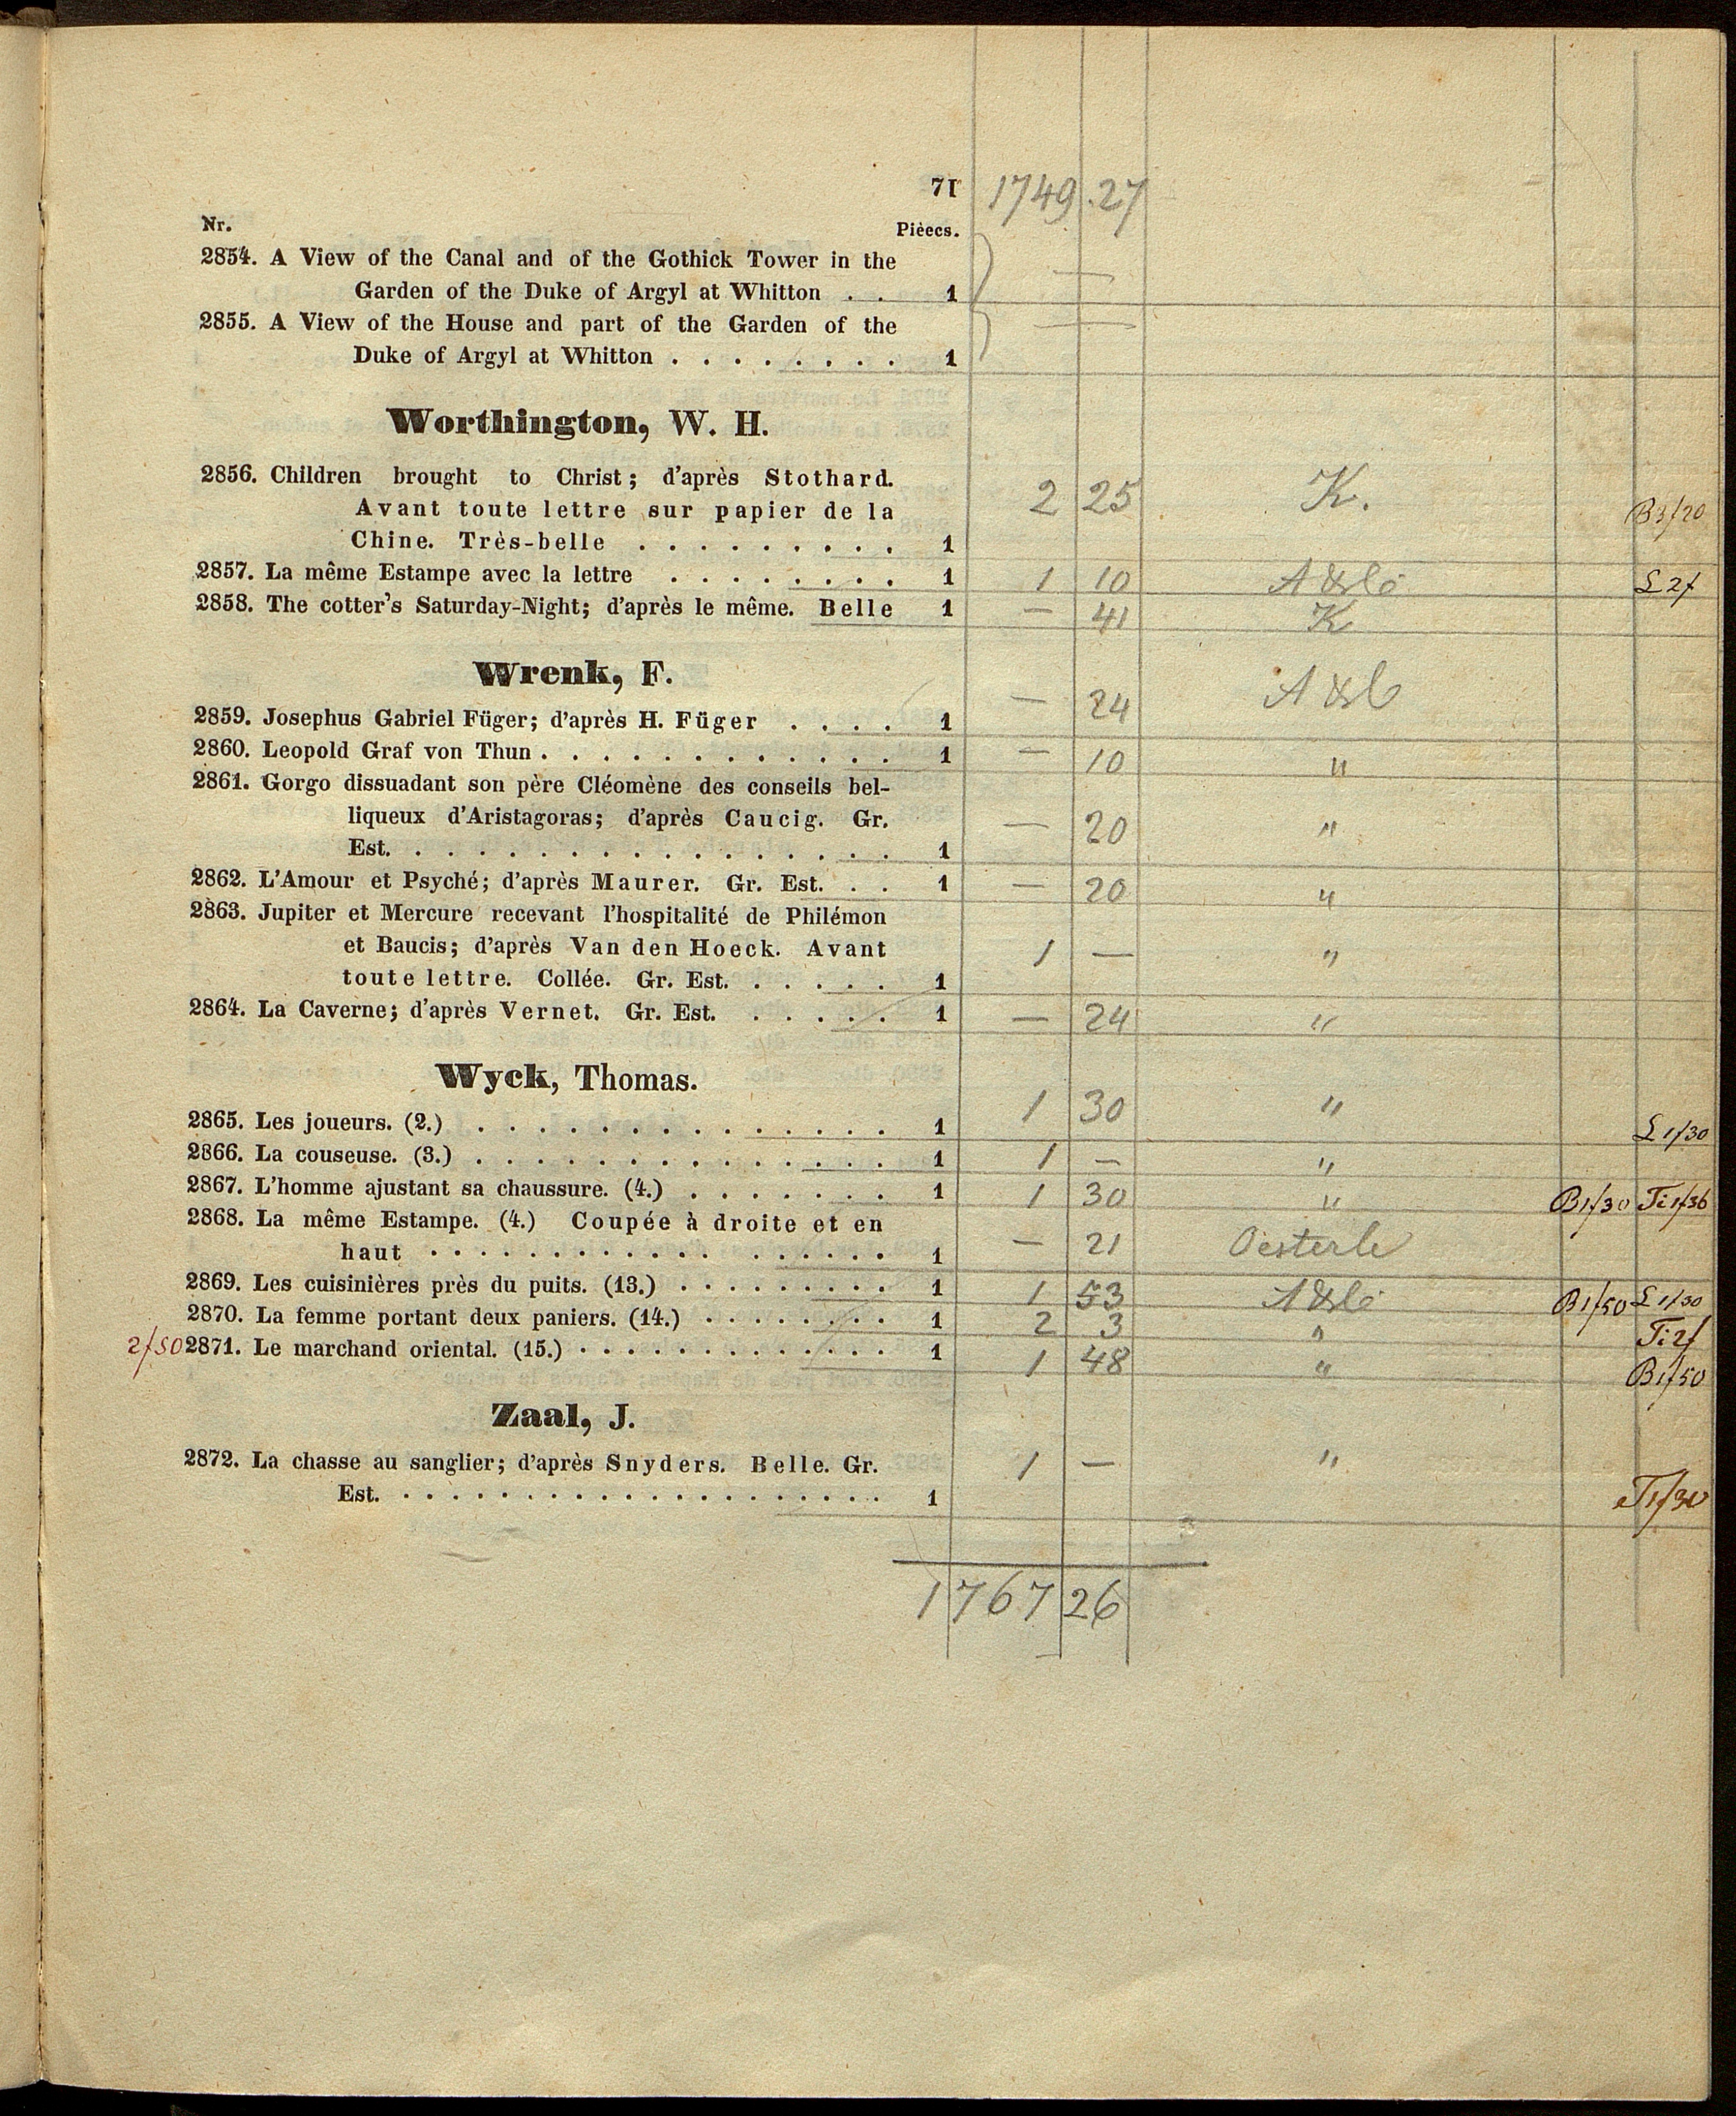 71 1749 27
Nr. Pièces.
2854. A View of the Canal and of the Gothick Tower in the
Garden of the Duke of Argyl at Whitton . . 1 —
2855. A View of the House and part of the Garden of the —
Duke of Argyl at Whitton . . . . . . . . 1
Worthington, W. H.
2856. Children brought to Christ; d'après Stothard.
Avant toute lettre sur papier de la 2 25 K. B3/20
Chine. Très-belle . . . . . . . . . 1
2857. La même Estampe avec la lettre . . . . . . . . 1 1 10 £ 2f
2858. The cotter's Saturday-Night; d'après le même. Belle 1 — 41 K
Wrenk, F.
2859. Josephus Gabriel Füger; d'après H. Füger . . . . 1 — 24
2860. Leopold Graf von Thun . . . . . . . . . . . . 1 — 10 "
2861. Gorgo dissuadant son père Cléomène des conseils bel-
liqueux d'Aristagoras; d'après Caucig. Gr. — 20 "
Est. . . . . . . . . . . . . . . . . . 1
2862. L'Amour et Psyché; d'après Maurer. Gr. Est. . . 1 — 20 "
2863. Jupiter et Mercure recevant l'hospitalité de Philémon
et Baucis; d'après Van den Hoeck. Avant 1 — "
toute lettre. Collée. Gr. Est. . . . . . 1
2864. La Caverne; d'après Vernet. Gr. Est. . . . . . 1 — 24 "
Wyck, Thomas.
2865. Les joueurs. (2.) . . . . . . . . . . . . . . 1 1 30 " £ 1/30
2866. La couseuse. (3.) . . . . . . . . . . . . . . 1 1 — "
2867. L'homme ajustant sa chaussure. (4.) . . . . . . . 1 1 30 " B1/30 Ti1/36
2868. La même Estampe. (4.) Coupée à droite et en
haut . . . . . . . . . . . . . . . . 1 — 21 Oesterle
2869. Les cuisinières près du puits. (13.) . . . . . . . . . 1 1 53 B1/50 £ 1/30
2870. La femme portant deux paniers. (14.) . . . . . . . . 1 2 3 " Ti 2f
2/50 2871. Le marchand oriental. (15.) . . . . . . . . . . . . . 1 1 48 " B1/50
Zaal, J.
2872. La chasse au sanglier; d'après Snyders. Belle. Gr. 1 — "
Est. . . . . . . . . . . . . . . . . . . . . 1 T1/30
1767 26